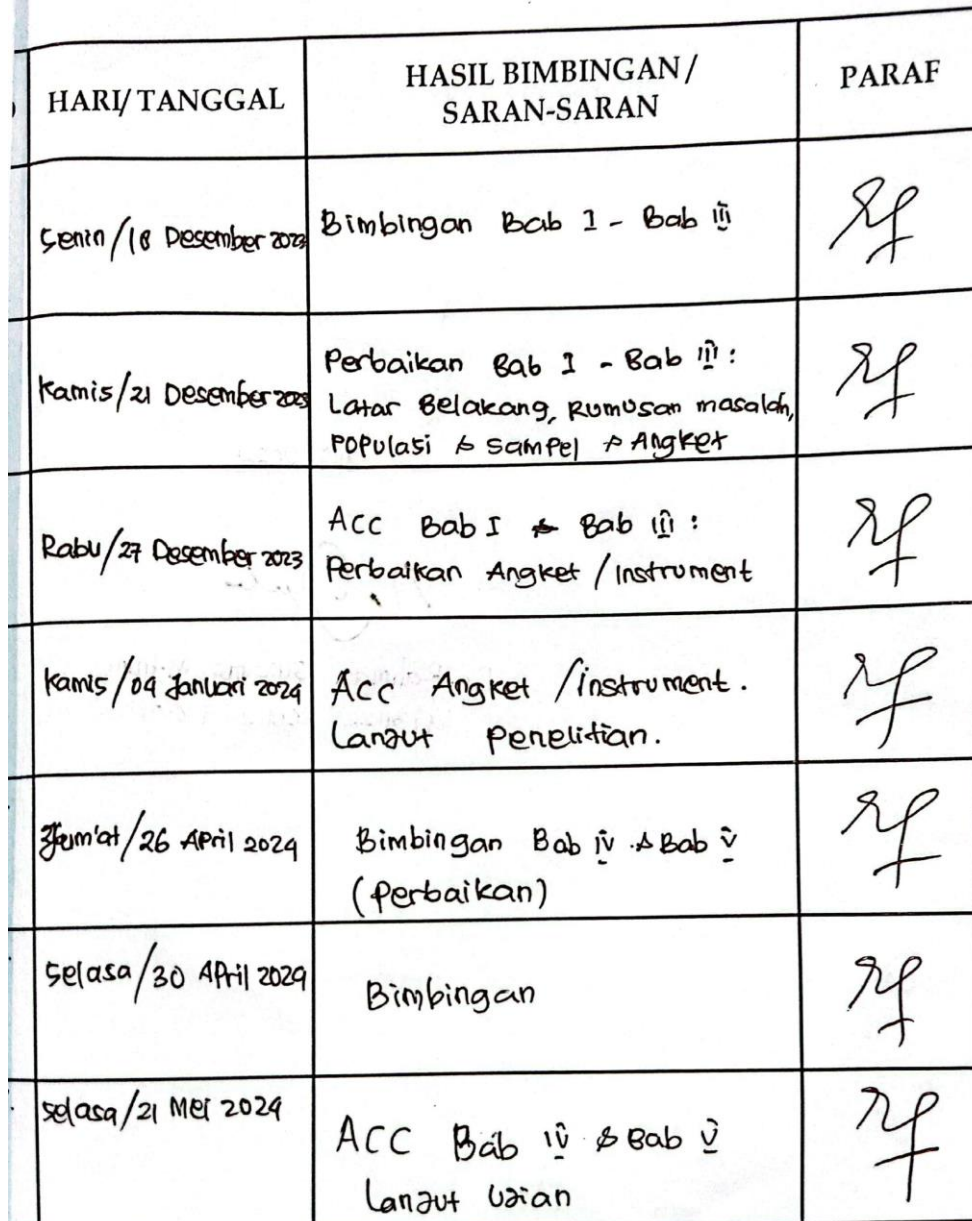 HARI/TANGGAL
HASIL BIMBINGAN/
SARAN-SARAN
PARAF
Senin/18 Desember 2023
Bimbingan Bab I - Bab III
Kamis/21 Desember 2023
Perbaikan Bab I - Bab III :
Latar Belakang, Rumusan masalah,
Populasi & Sampel & Angket
Rabu/27 Desember 2023
ACC Bab I & Bab III :
Perbaikan Angket / Instrument
Kamis/04 Januari 2024
Acc Angket /instrument.
Lanjut Penelitian.
Jum'at/26 April 2024
Bimbingan Bab IV & Bab V
(Perbaikan)
Selasa/30 April 2024
Bimbingan
Selasa/21 Mei 2024
ACC Bab IV & Bab V
Lanjut Ujian